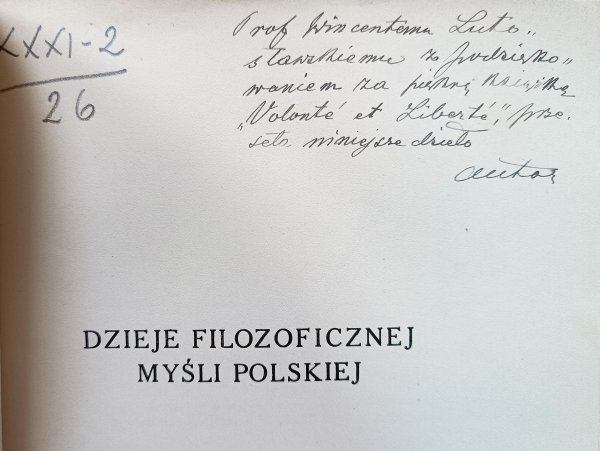 XXXI-2
26
Prof Wincentemu Luto„
sławskiemu z podzięko„
waniem za piękną książkę
"Volonté et Liberté", prze-
seła niniejsze dzieło
autor
DZIEJE FILOZOFICZNEJ
MYŚLI POLSKIEJ